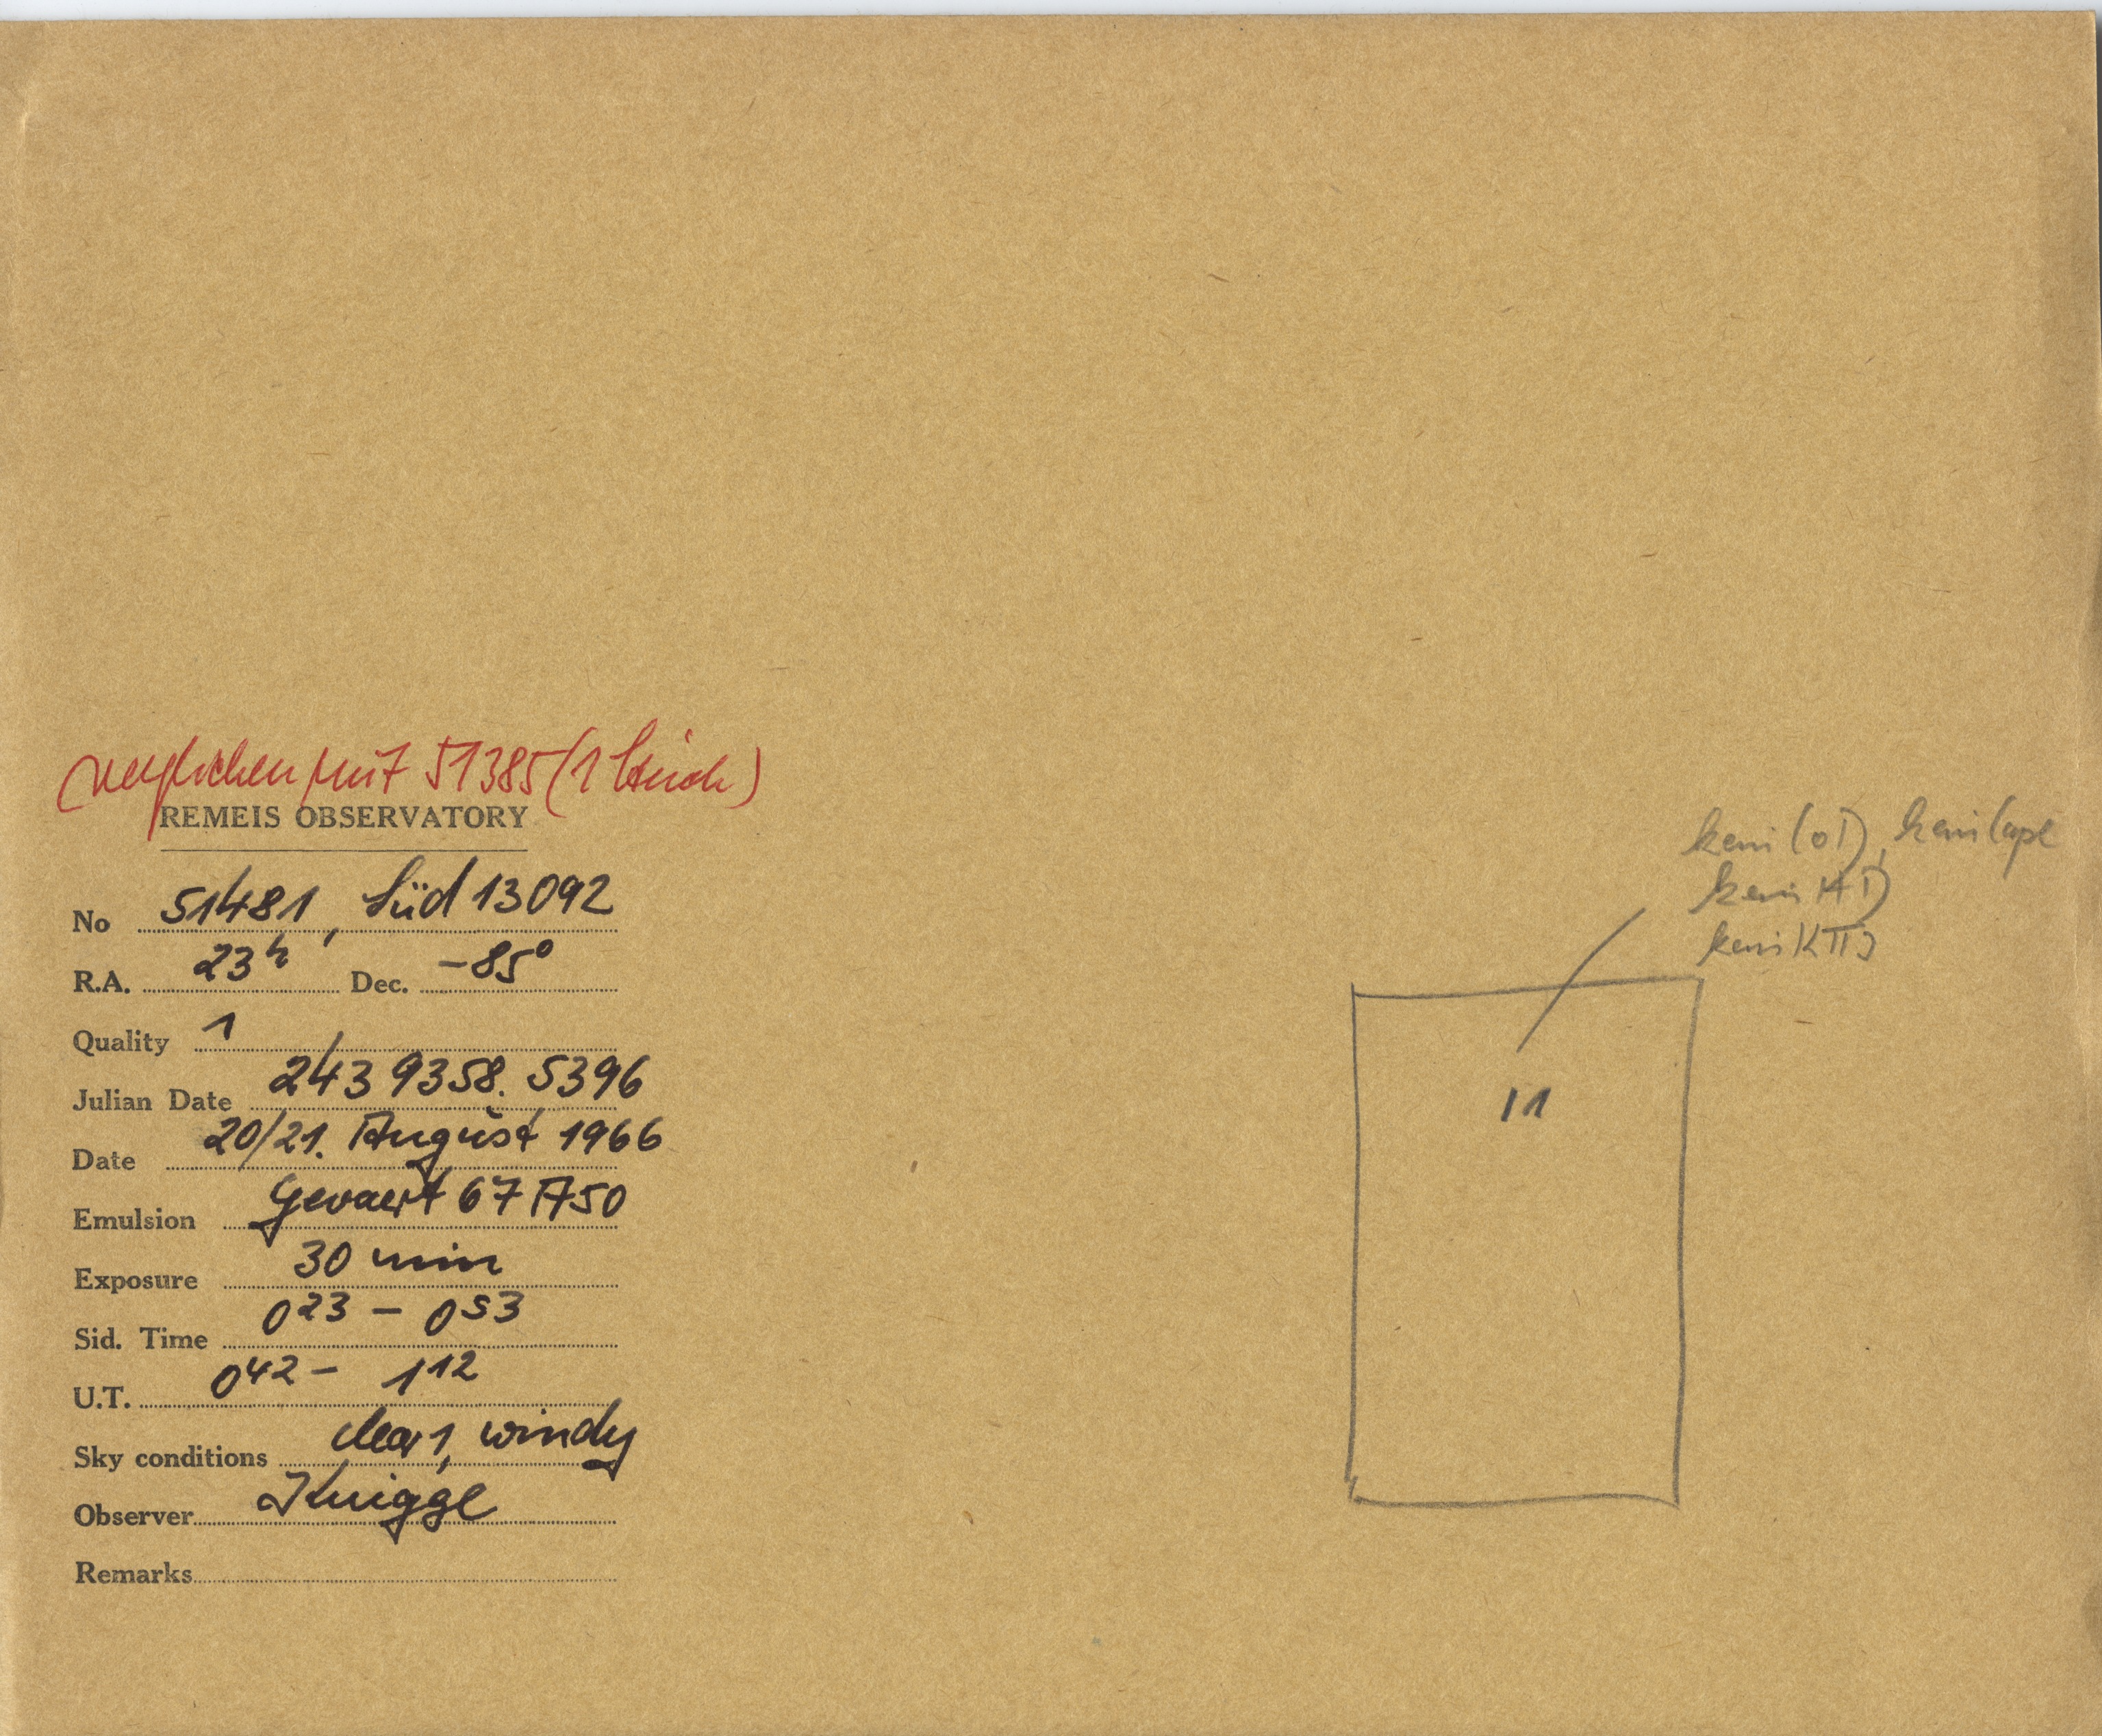 verglichen mit 51385 (1 Strich)
REMEIS OBSERVATORY
No 51481, Süd 13092
R.A. 23h Dec. -85°
Quality 1
Julian Date 2439358.5396
Date 20/21. August 1966
Emulsion Gevaert 67A50
Exposure 30 min
Sid. Time 0 23 - 0 53
U.T. 0 42 - 1 12
Sky conditions clear 1, windy
Observer Knigge
Remarks
kein
kein
kein
11